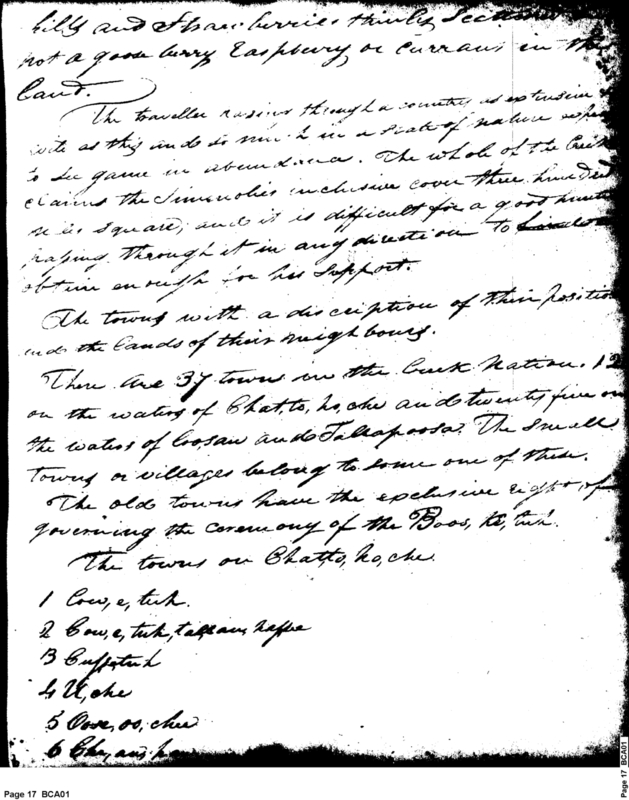 hills and Strawberries thinly
not a gooseberry Raspberry or Currans in the
land.
The traveller passing through a country as extensive &
as this and so much in a state of nature
to see game in abundance. The whole of the Creek
claims the Simenolies inclusive cover three hundred
miles square, and it is difficult for a good hunter
passing through it in any direction to
obtine enough for his support.
The towns with a discription of their position
and the lands of their neighbours.
There are 37 towns in the Creek Nation. 12
on the waters of Chat,to,ho,che and twenty five on
the waters of Coosau and Tallapoosa. The small
towns or villages belong to some one of these.
The old towns have the exclusive right of
governing the ceremony of the Boos,ke,tuh.
The towns on Chat,to,ho,che.
1 Cow,e,tuh.
2 Cow,e,tuh,tal,lau,hassee
3 Cusse,tuh
4 U,che
5 Oose,oo,chee
6 Che,au,hau
Page 17 BCA01
Page 17 BCA01